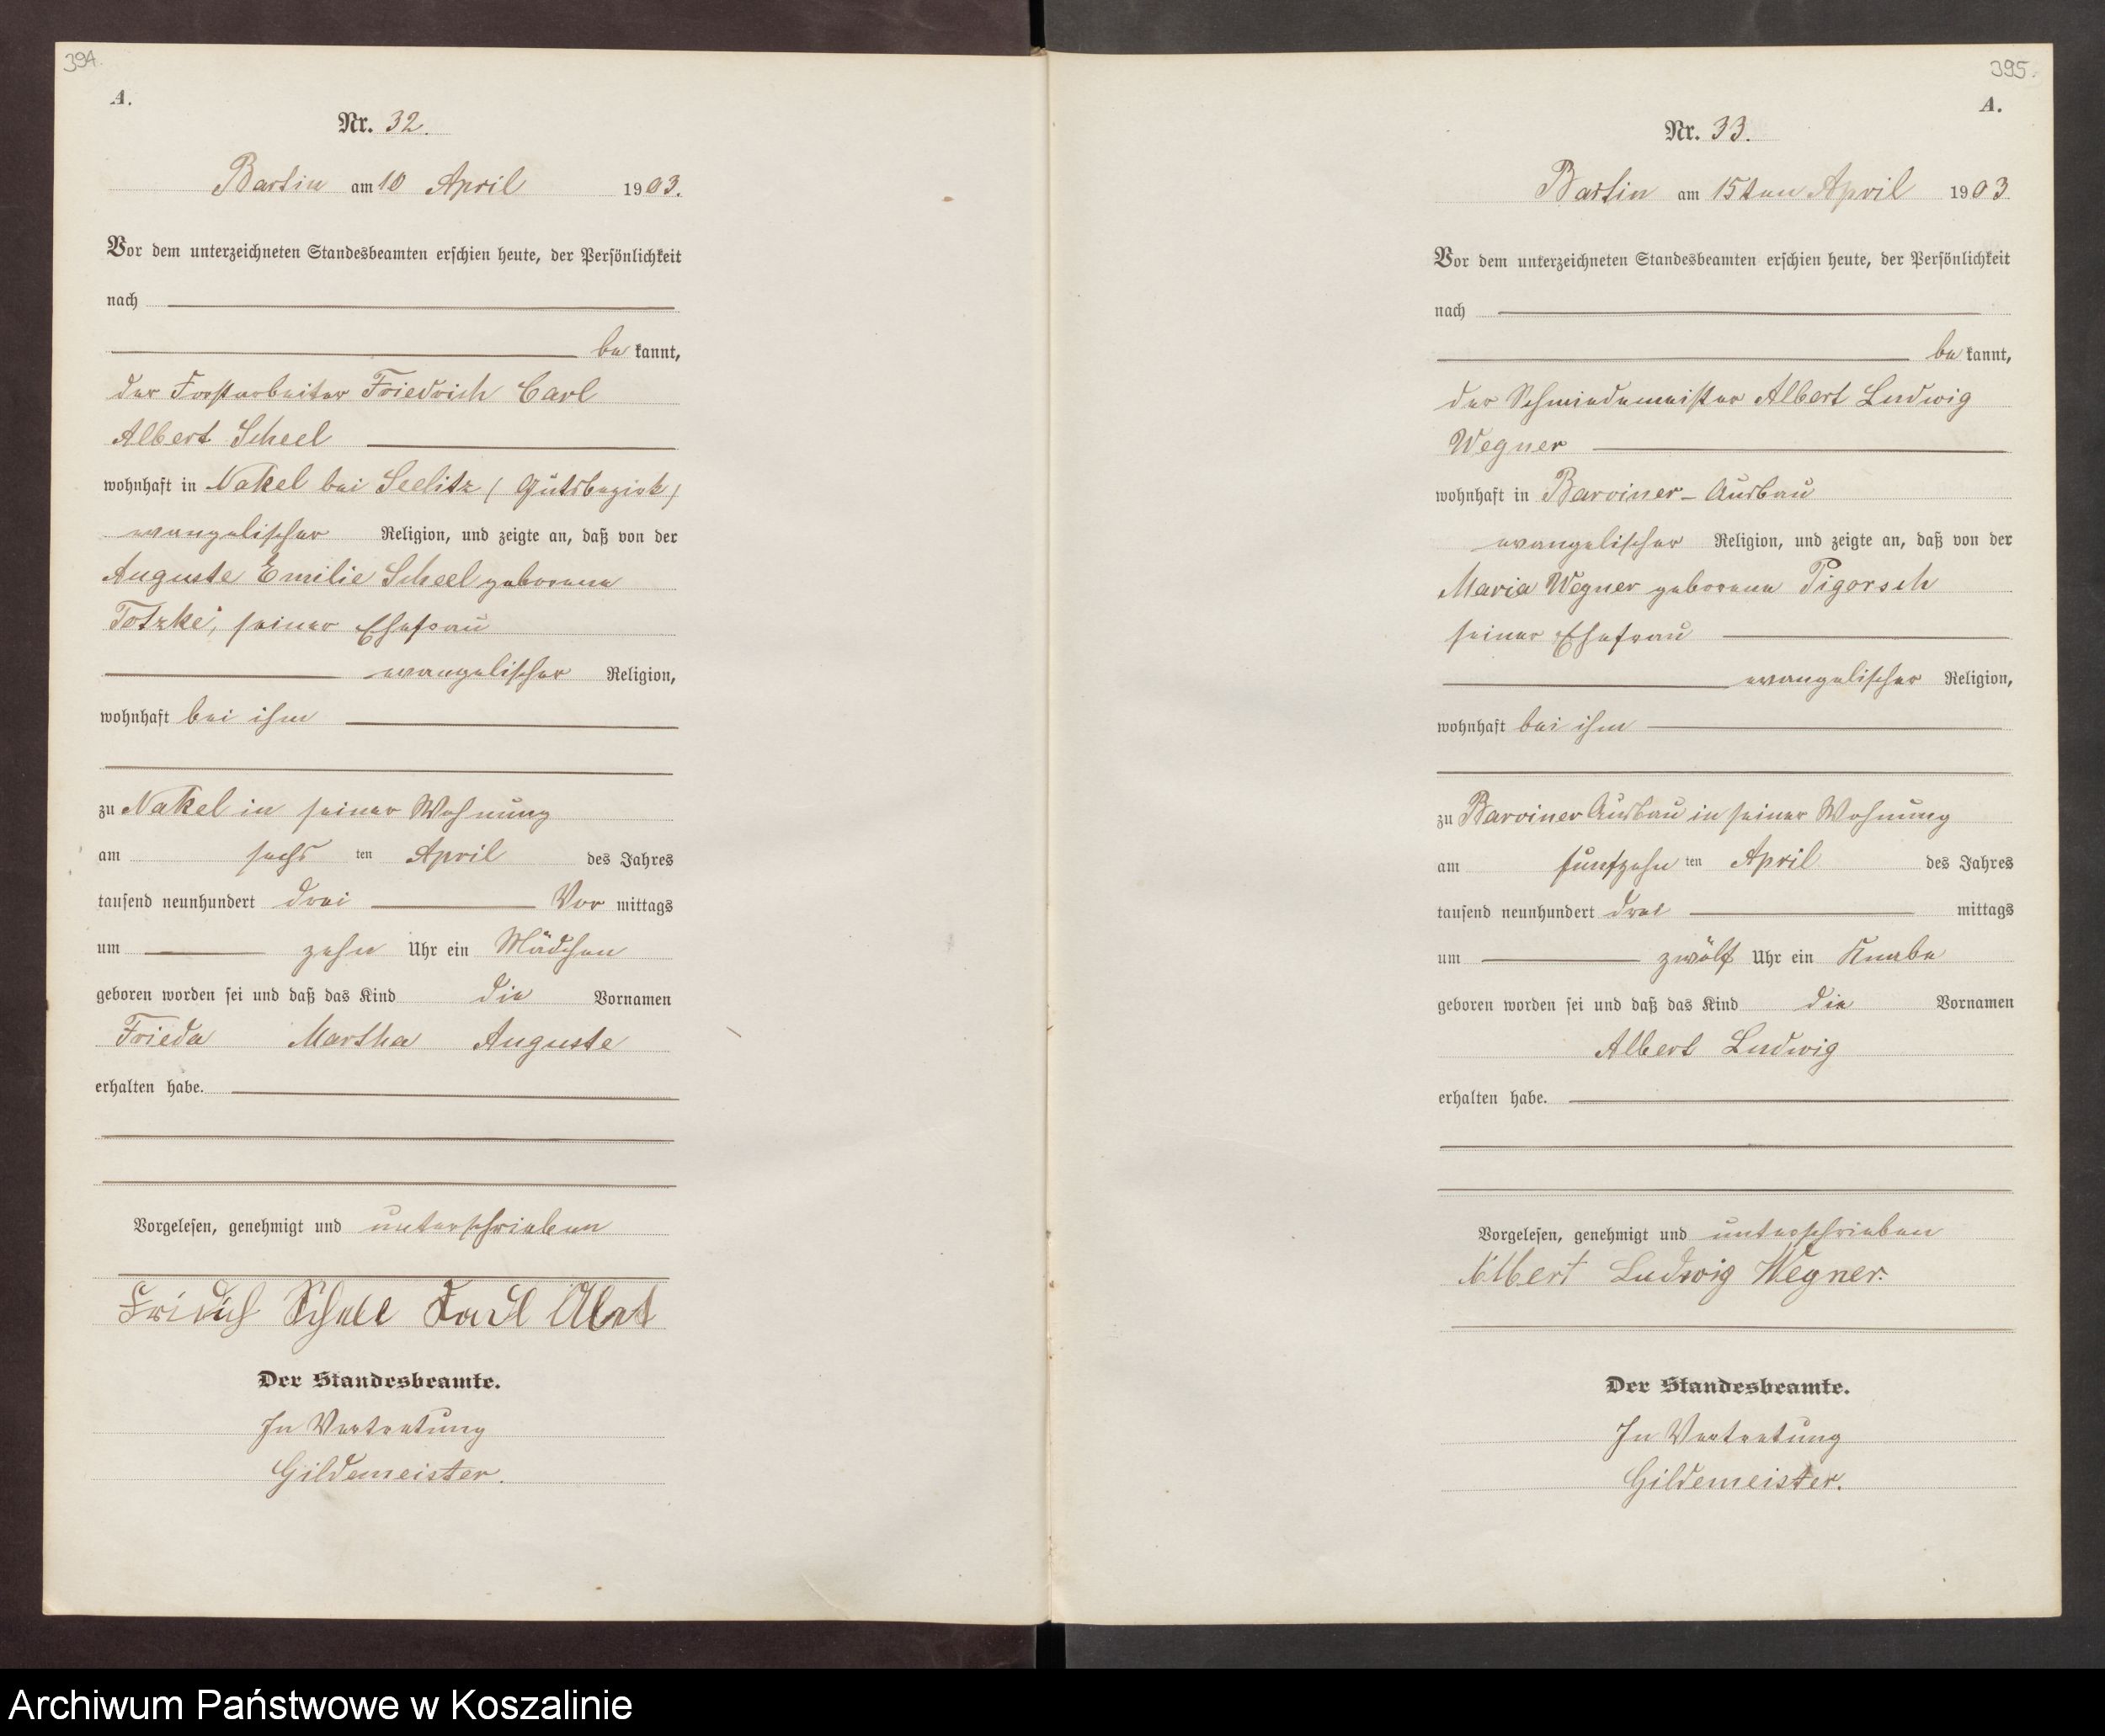 394.
A.
Nr. 32.
Bartin am 10 April 1903.
Vor dem unterzeichneten Standesbeamten erschien heute, der Persönlichkeit
nach
be kannt,
der Forstarbeiter Friedrich Carl
Albert Scheel
wohnhaft in Nakel bei Seelitz (Gutsbezirk)
evangelischer Religion, und zeigte an, daß von der
Auguste Emilie Scheel geborene
Totzke, seiner Ehefrau
evangelischer Religion,
wohnhaft bei ihm
zu Nakel in seiner Wohnung
am sechs ten April des Jahres
tausend neunhundert drei Vor mittags
um zehn Uhr ein Mädchen
geboren worden sei und daß das Kind die Vornamen
Frieda Martha Auguste
erhalten habe.
Vorgelesen, genehmigt und unterschrieben
Fridich Scheel Karl Albert
Der Standesbeamte.
In Vertretung
Gildemeister.
395.
A.
Nr. 33.
Bartin am 15ten April 1903
Vor dem unterzeichneten Standesbeamten erschien heute, der Persönlichkeit
nach
be kannt,
der Schmiedemeister Albert Ludwig
Wegner
wohnhaft in Barviner-Ausbau
evangelischer Religion, und zeigte an, daß von der
Maria Wegner geborene Pigorsch
seiner Ehefrau
evangelischer Religion,
wohnhaft bei ihm
zu Barviner Ausbau in seiner Wohnung
am fünfzehn ten April des Jahres
tausend neunhundert drei mittags
um zwölf Uhr ein Knabe
geboren worden sei und daß das Kind die Vornamen
Albert Ludwig
erhalten habe.
Vorgelesen, genehmigt und unterschrieben
Albert Ludwig Wegner.
Der Standesbeamte.
In Vertretung
Gildemeister.
Archiwum Państwowe w Koszalinie